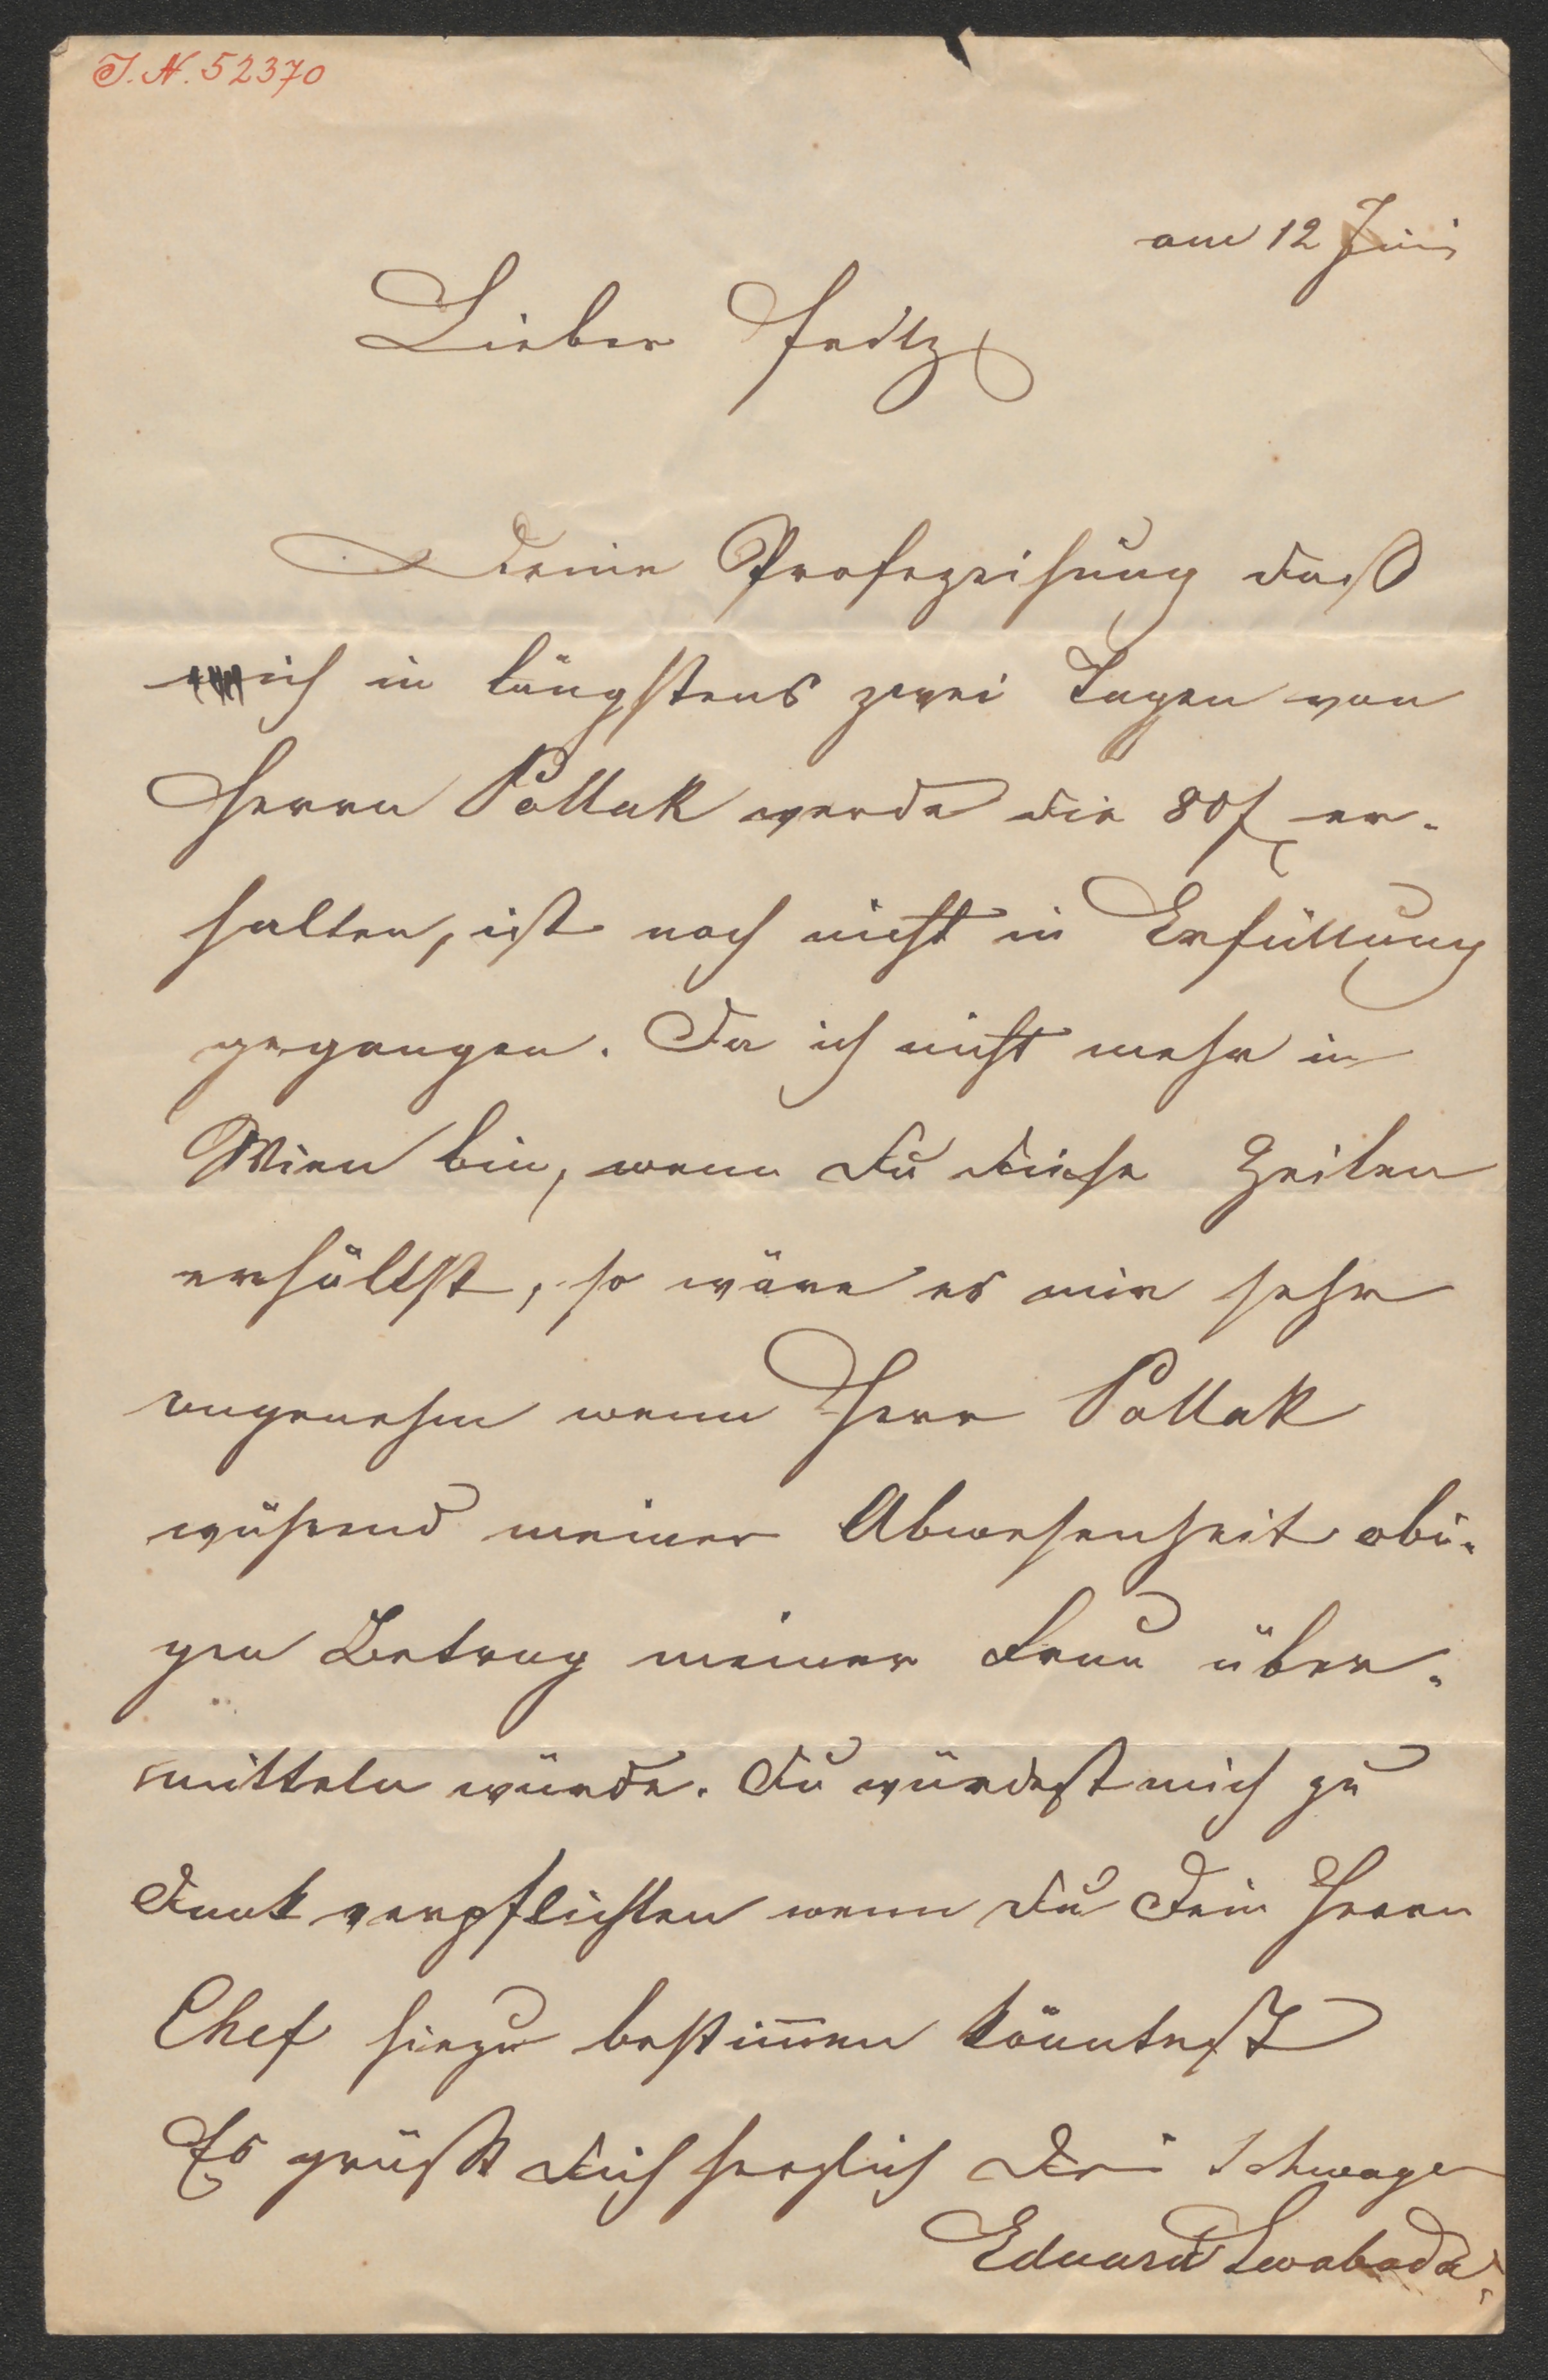 J. N. 52370
am 12 Juni
Lieber Fritz
Deine Profezeihung daß
ich in längstens zwei Tagen von
Herrn Pollak werde die 80 f er-
halten, ist noch nicht in Erfüllung
gegangen. Da ich nicht mehr in
Wien bin, wenn Du diese Zeilen
erhältst, so wäre es mir sehr
angenehm wenn Herr Pollak
während meiner Abwesenheit obi-
gen Betrag meiner Frau über-
mitteln würde. Du würdest mich zu
Dank verpflichten wenn Du Dein Herrn
Chef hiezu bestim̄en könntest
Es grüßt Dich herzlich Dein Schwager
Eduard Swoboda